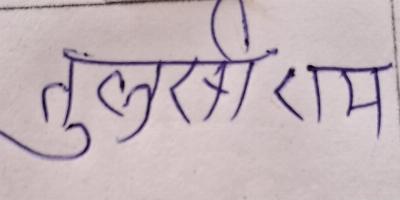 तुलसी राम